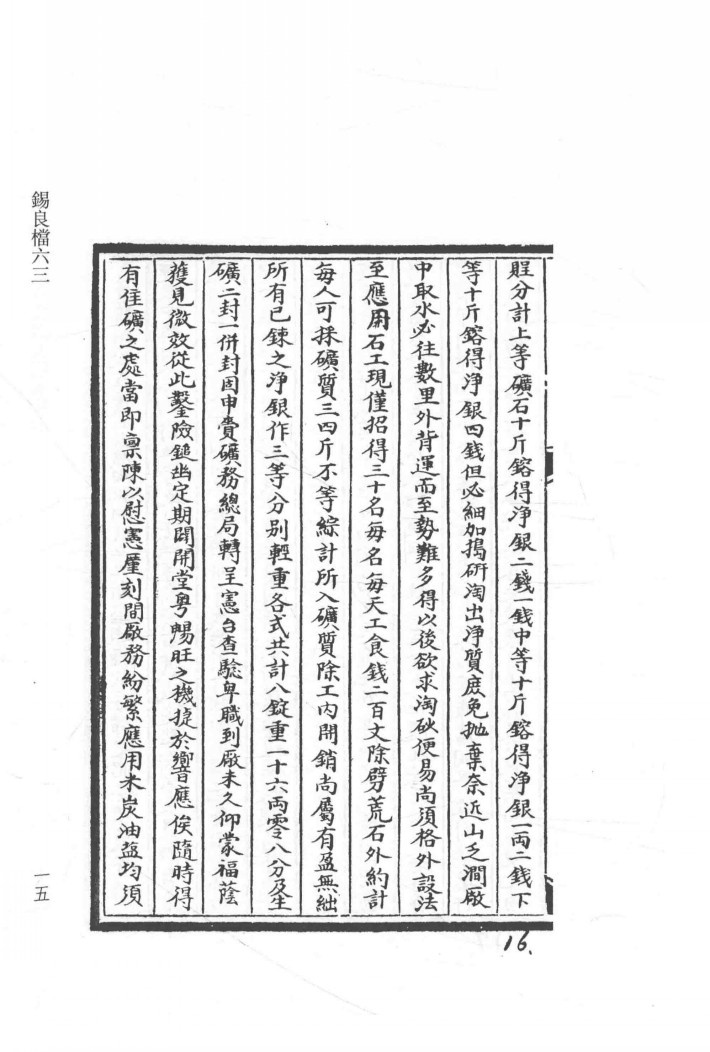 程分計上等礦石十斤鎔得淨銀二錢一錢中等十斤鎔得淨銀一両二錢下
等十斤鎔得淨銀四錢但必細加搗研淘出淨質庶免抛棄奈近山乏澗廠
中取水必往數里外背運而至勢難多得以後欲求淘砂便易尚須格外設法
至應用石工現僅招得三十名每名每天工食錢二百文除劈荒石外約計
每人可採礦質三四斤不等綜計所入礦質除工內開銷尚屬有盈無絀
所有已鍊之淨銀作三等分別輕重各式共計八錠重一十六両零八分及生
礦二封一併封固申賫礦務總局轉呈憲台查驗卑職到廠未久仰蒙福蔭
獲見微效從此鑿險鎚幽定期闢開堂奧暢旺之機捷於響應俟隨時得
有佳礦之處當即禀陳以慰憲廑刻間廠務紛繁應用米炭油盐均須
16.
錫良檔六三
一五